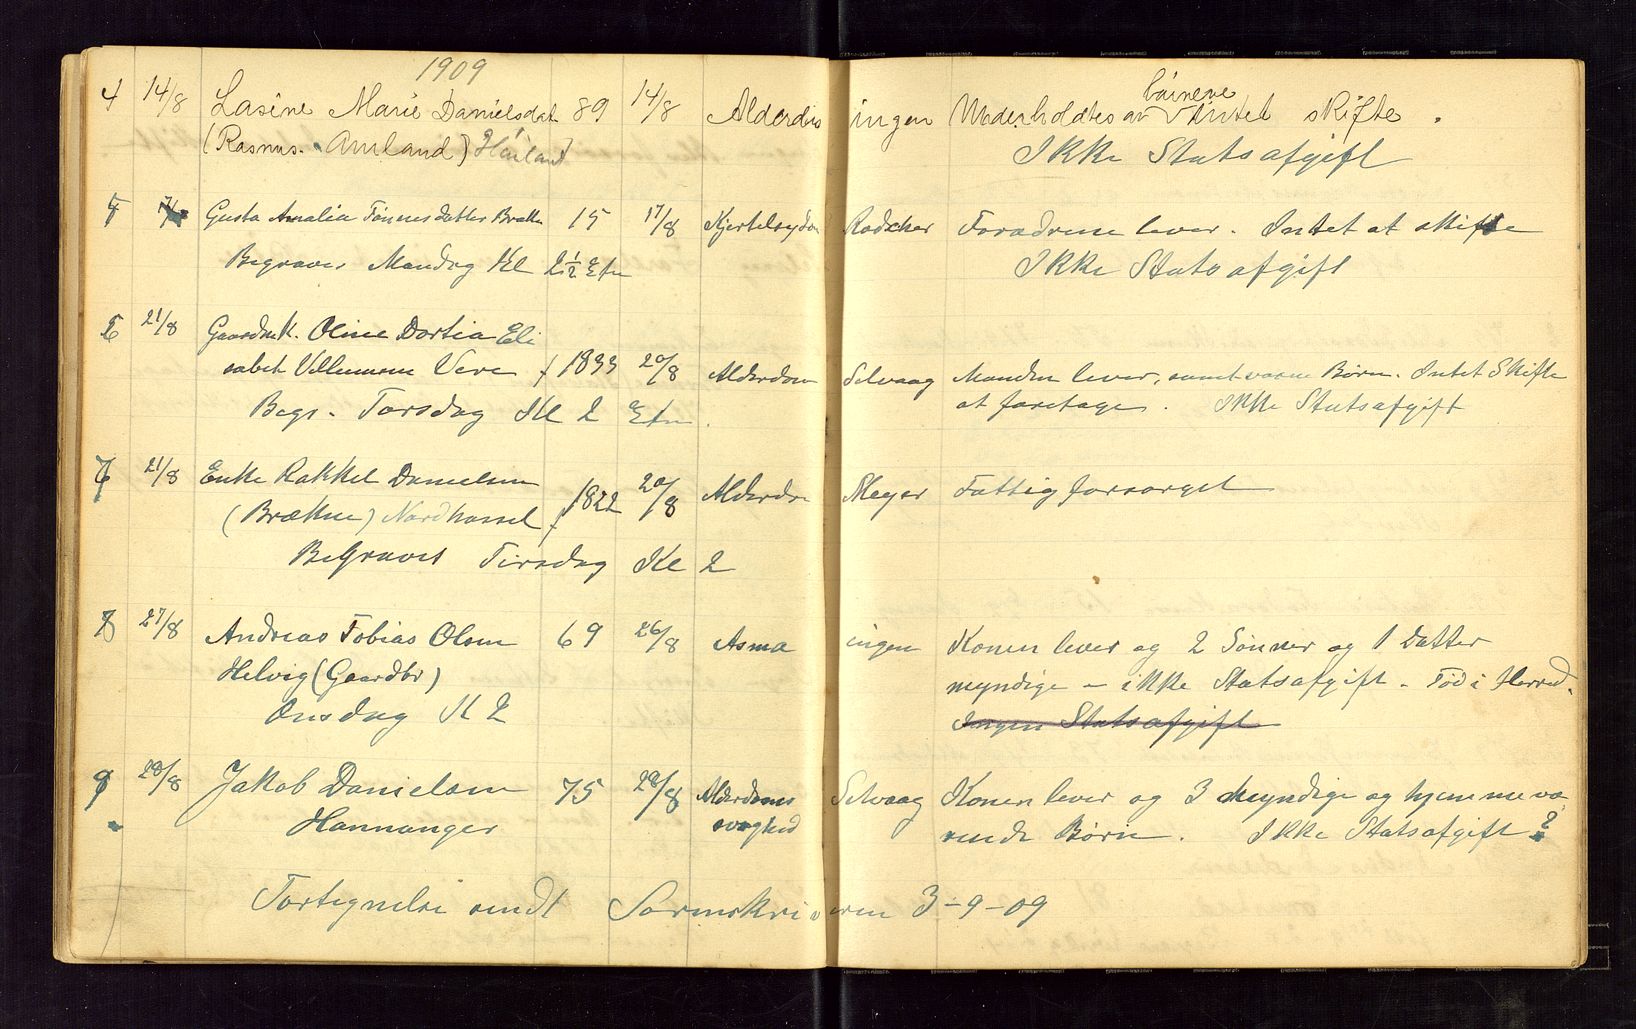 1909
4 14/8 Lasine Marie Danielsdat 89 14/8 Alderdom ingen Underholdtes av børnene Intet skifte.
(Rasmus. Amland) Hauland Ikke Statsafgift
5 Gusta Amalia Tønnesdatter Brække 15 17/8 Kjertelsygdom Rodscher Forældrene lever. Intet at skifte
Begraves Mandag Kl 2 1/2 Etm Ikke Statsafgift
6 21/8 Gaardmk. Oline Dortia Eli
sabet Villumsen Vere f 1833 20/8 Alderdom Selvaag Manden lever, samt voxne Børn. Intet Skifte
Begr. Torsdag Kl 2 Etm. at foretages. Ikke Statsafgift
7 21/8 Enke Rakkel Danielsen
(Brækne) Nordhassel f 1822 20/8 Alderdom Meyer Fattigforsørget
Begraves Tirsdag Kl 2
8 27/8 Andreas Tobias Olsen 69 26/8 Asma ingen Konen lever og 2 Sønner og 1 Datter
Helvig (Gaardbr) myndige - ikke Statsafgift - Fød i Herred.
Onsdag Kl 2 Ingen Statsafgift
9 28/8 Jakob Danielsen 75 28/8 Alderdoms Selvaag Konen lever og 3 Myndige og hjemmevæ
Hannanger svaghed rende Børn. Ikke Statsafgift?
Fortegnelse sendt Sorenskriveren 3-9-09